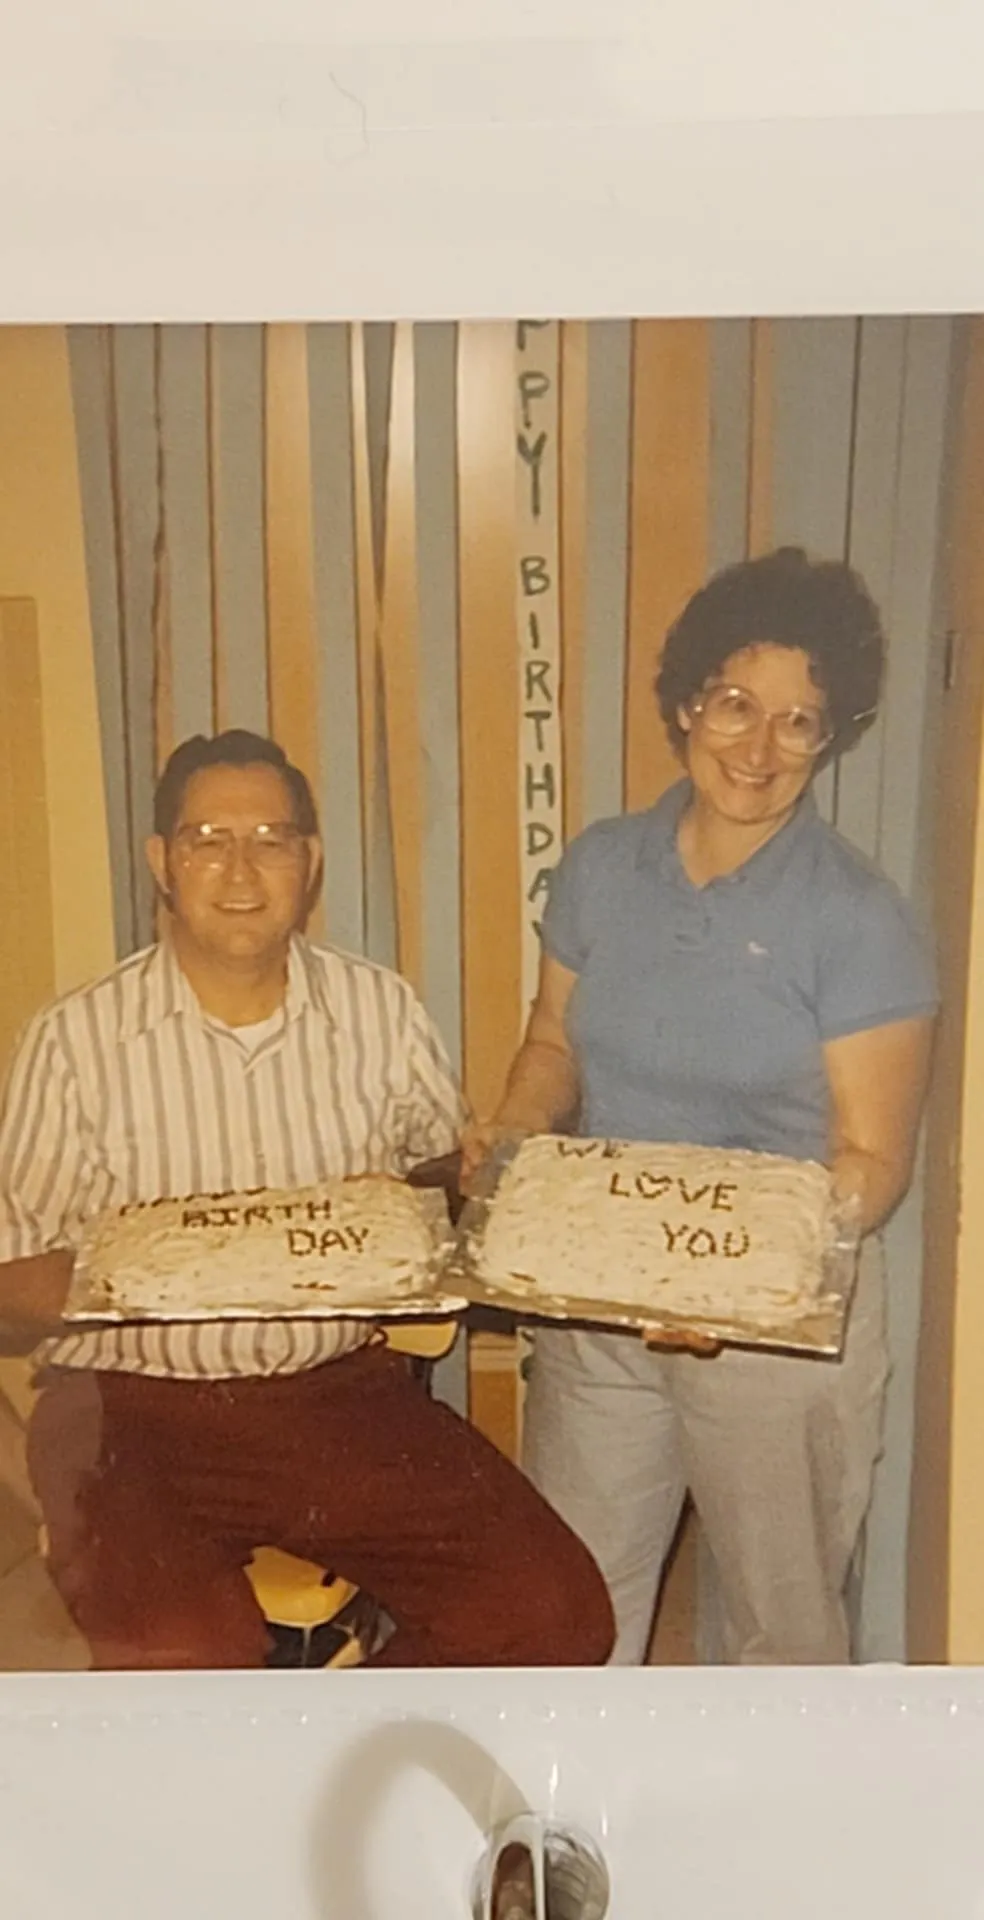 PPY BIRTHDAY
BIRTH
DAY
WE
LOVE
YOU